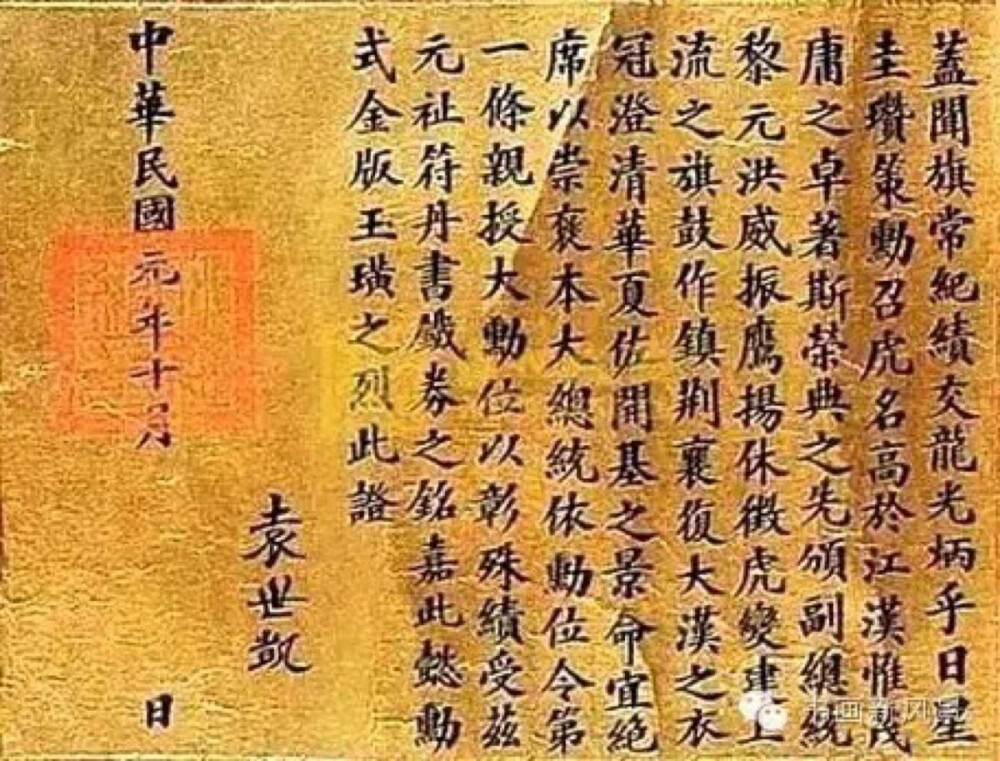 蓋聞旗常紀績交龍光炳乎日星
圭瓚策勳召虎名高於江漢惟茂
庸之卓著斯榮典之先頒副總統
黎元洪威振鷹揚休徵虎變建上
流之旗鼓作鎮荆襄復大漢之衣
冠澄清華夏佐開基之景命宜絕
席以崇褒本大總統依勳位令第
一條親授大勳位以彰殊績受茲
元祉符丹書鐵券之銘嘉此懿勳
式金版玉璜之烈此證
袁世凱
中華民國元年十月 日
书画新风